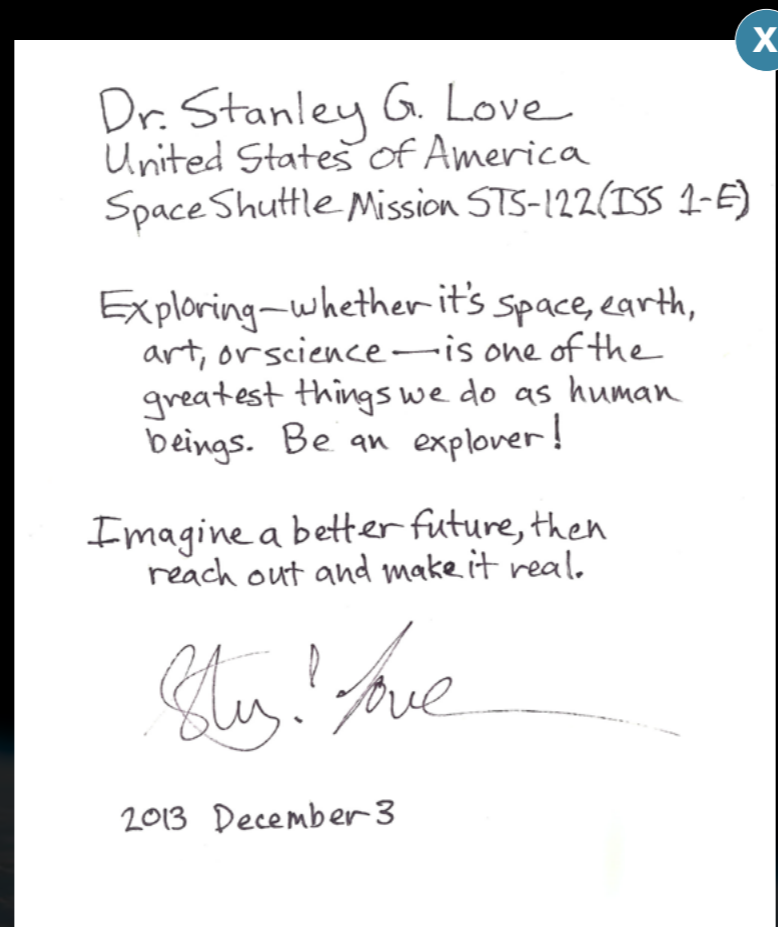 X
Dr. Stanley G. Love
United States of America
Space Shuttle Mission STS-122 (ISS 1-E)
Exploring—whether it's space, earth,
art, or science—is one of the
greatest things we do as human
beings. Be an explorer!
Imagine a better future, then
reach out and make it real.
Love
2013 December 3